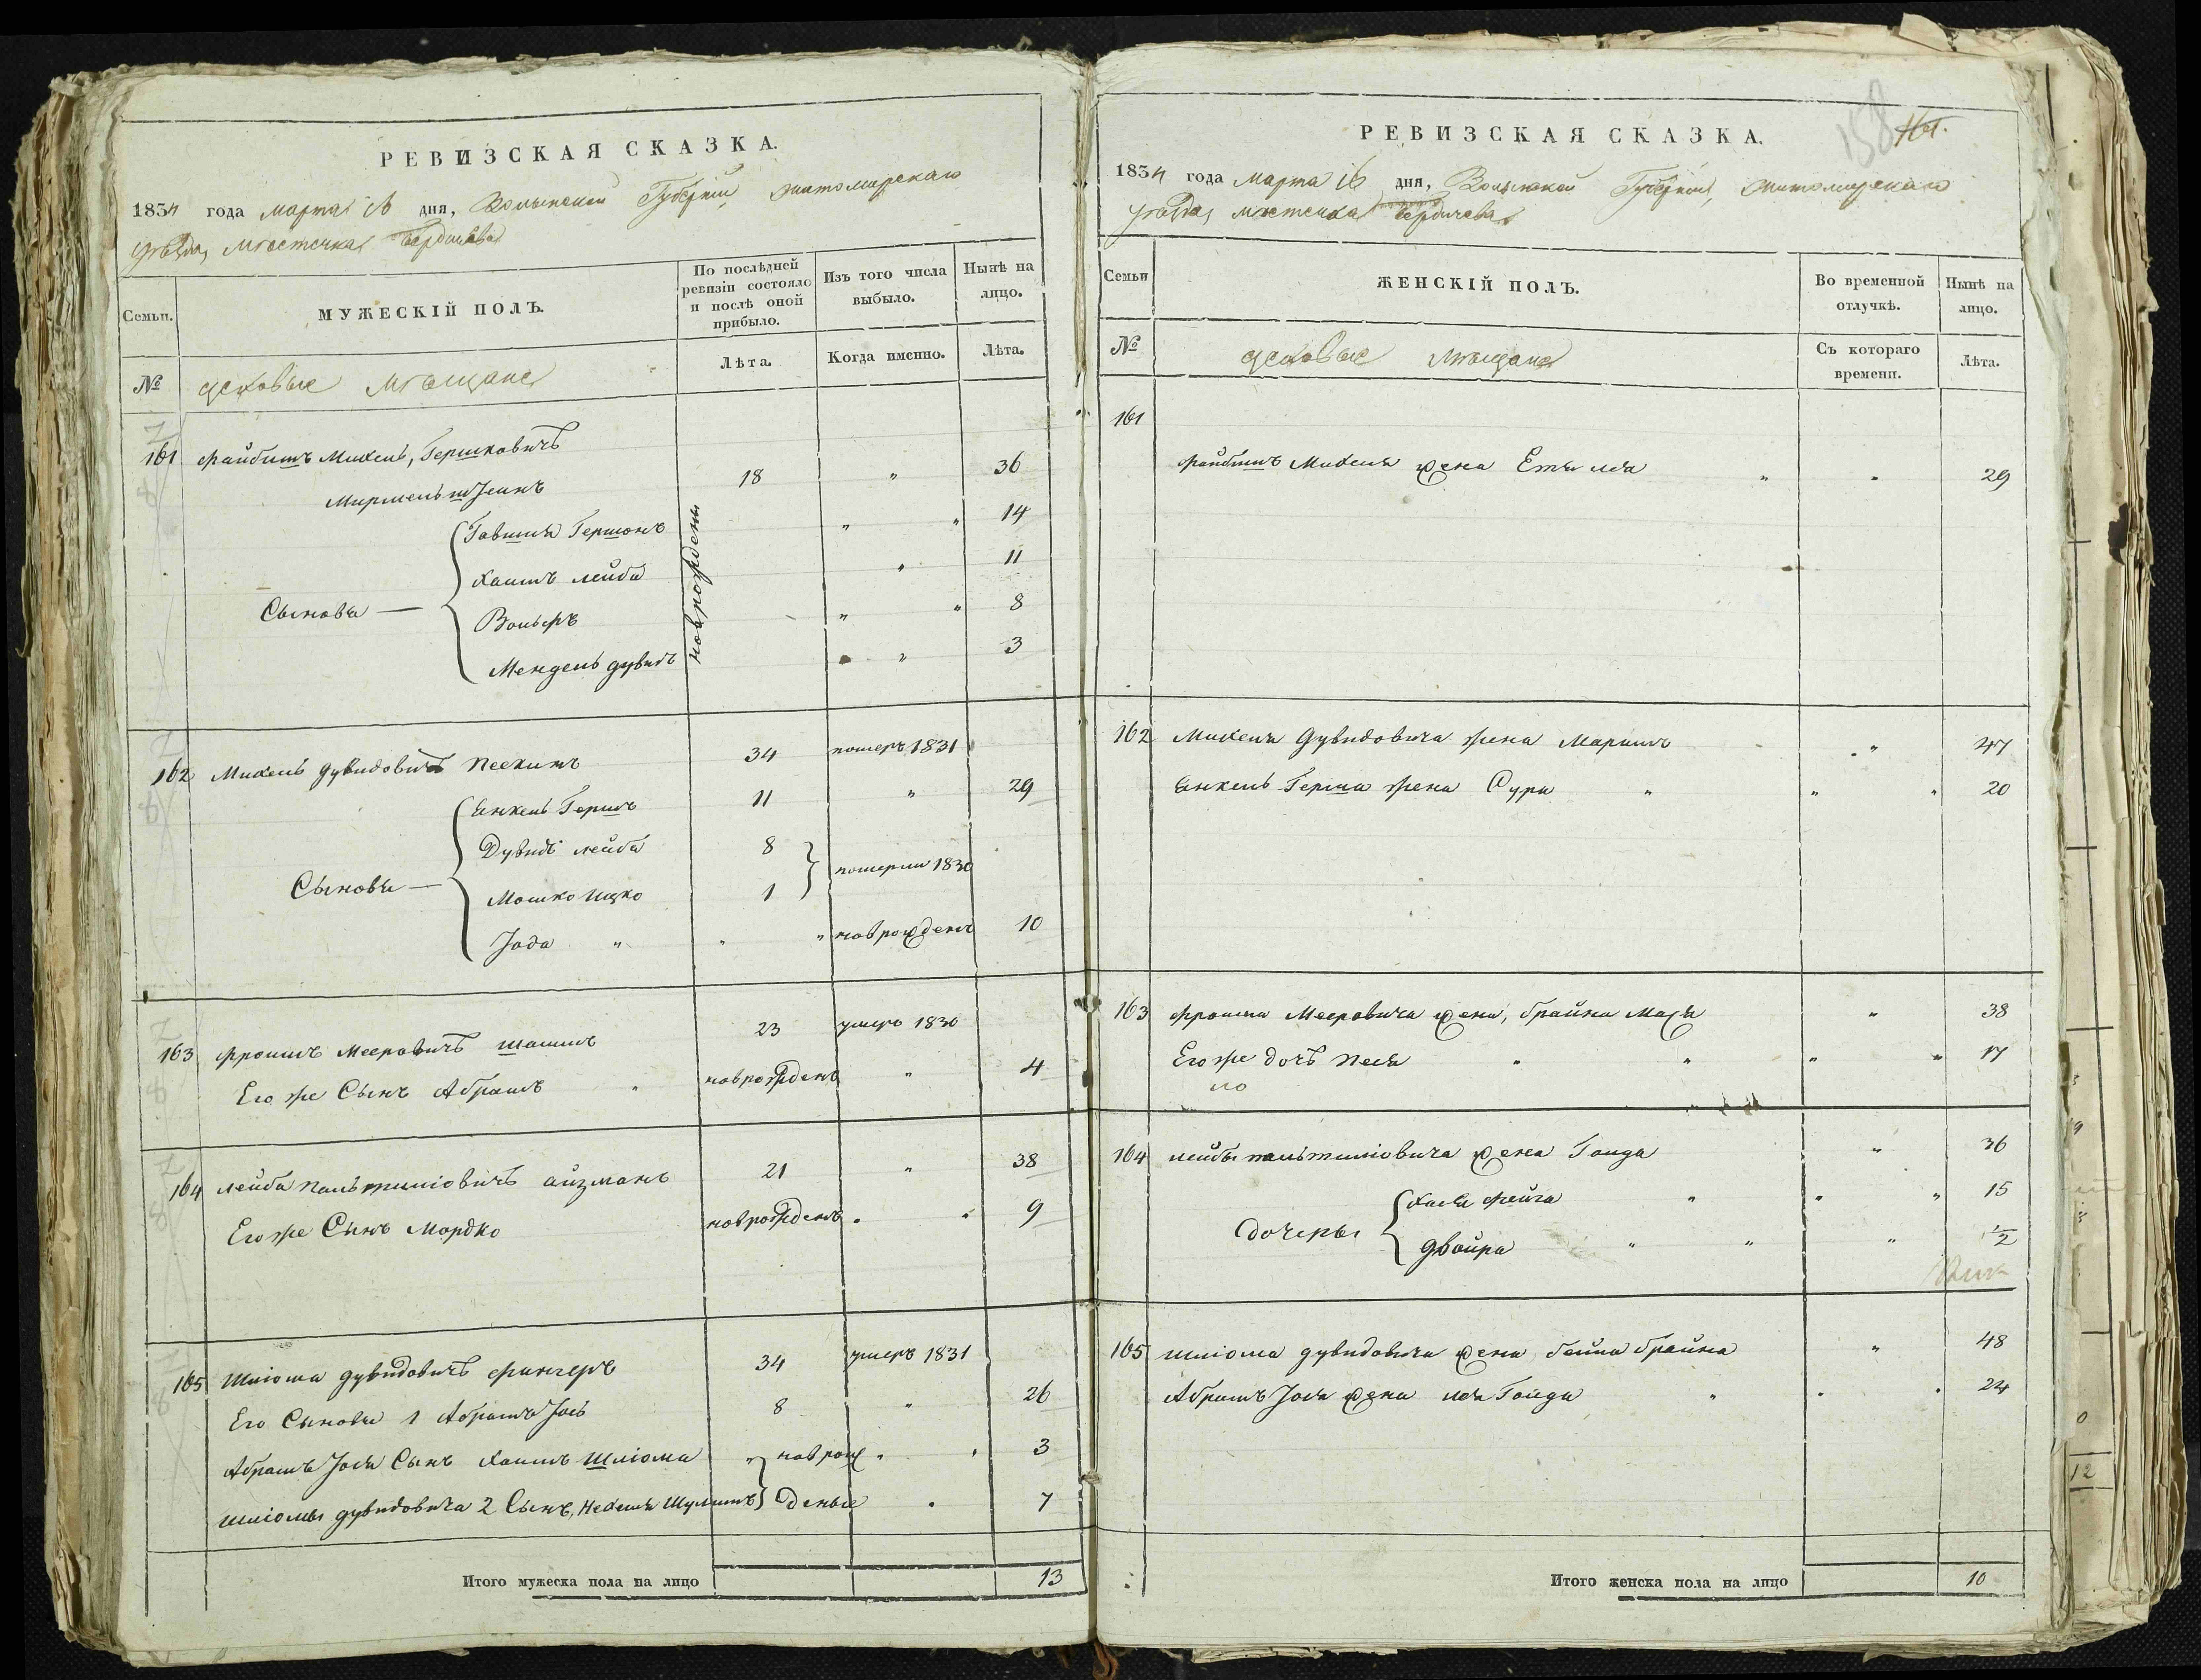 РЕВИЗСКАЯ СКАЗКА.
1834 года марта 16 дня, Волынской Губерніи, житомирскаго
уѣзда, мѣстечка Бердичева
Семьи.
МУЖЕСКІЙ ПОЛЪ.
По послѣдней ревизіи состояло и послѣ оной прибыло.
Изъ того числа выбыло.
Нынѣ на лицо.
№
цеховые мѣщане
Лѣта.
Когда именно.
Лѣта.
161 Файбишъ Михель, Гершковичъ
18 " 36
Сыновья — новорождены
Гавшия Гершонъ " " 14
Хаимъ лейба " 11
Вольфъ " " 8
Мендель дувидъ " " 3
162 Михель дувидовичъ 34 померъ 1831
Сыновья —
Янкель Гершъ 11 " 29
Дувидъ лейба 8
померли 1830
Мошко Ицко 1
Iода " " " новрожденъ 10
163 Фроимъ Мееровичъ 23 умеръ 1830
Его же Сынъ Абрамъ " новрожденъ " 4
164 лейба айзманъ 21 " 38
Его же Сынъ Мордко новрожденъ " " 9
165 Шліома дувидовичъ 34 умеръ 1831
Его Сыновья 1 Абрамъ Iось 8 " 26
Абрамъ Iося Сынъ Хаимъ Шліома " новрож " " 3
Шліомы дувидовича 2 Сынъ, деные " 7
Итого мужеска пола на лицо 13
158
161.
РЕВИЗСКАЯ СКАЗКА.
1834 года марта 16 дня, Волынской Губерніи, житомирскаго
уѣзда, мѣстечка Бердичева
Семьи
ЖЕНСКІЙ ПОЛЪ.
Во временной отлучкѣ.
Нынѣ на лицо.
№
цеховые мѣщане
Съ котораго времени.
Лѣта.
161
Файбишъ Михеля жена " " 29
162 Михеля Дувидовича жена Маріимъ " " 47
Янкель Герша жена Сура " " " 20
163 Фроима Мееровича жена, брайна " 38
Его же дочь Песя " " " " 17
164 лейбы жена Голда " 36
Дочеры
Хася фейга " " " 15
Двойра " " " 1/2
165 Шліома дувидовича жена бейла брайна " 48
Абрамъ Iося жена лея Голда " " " 24
Итого женска пола на лицо 10